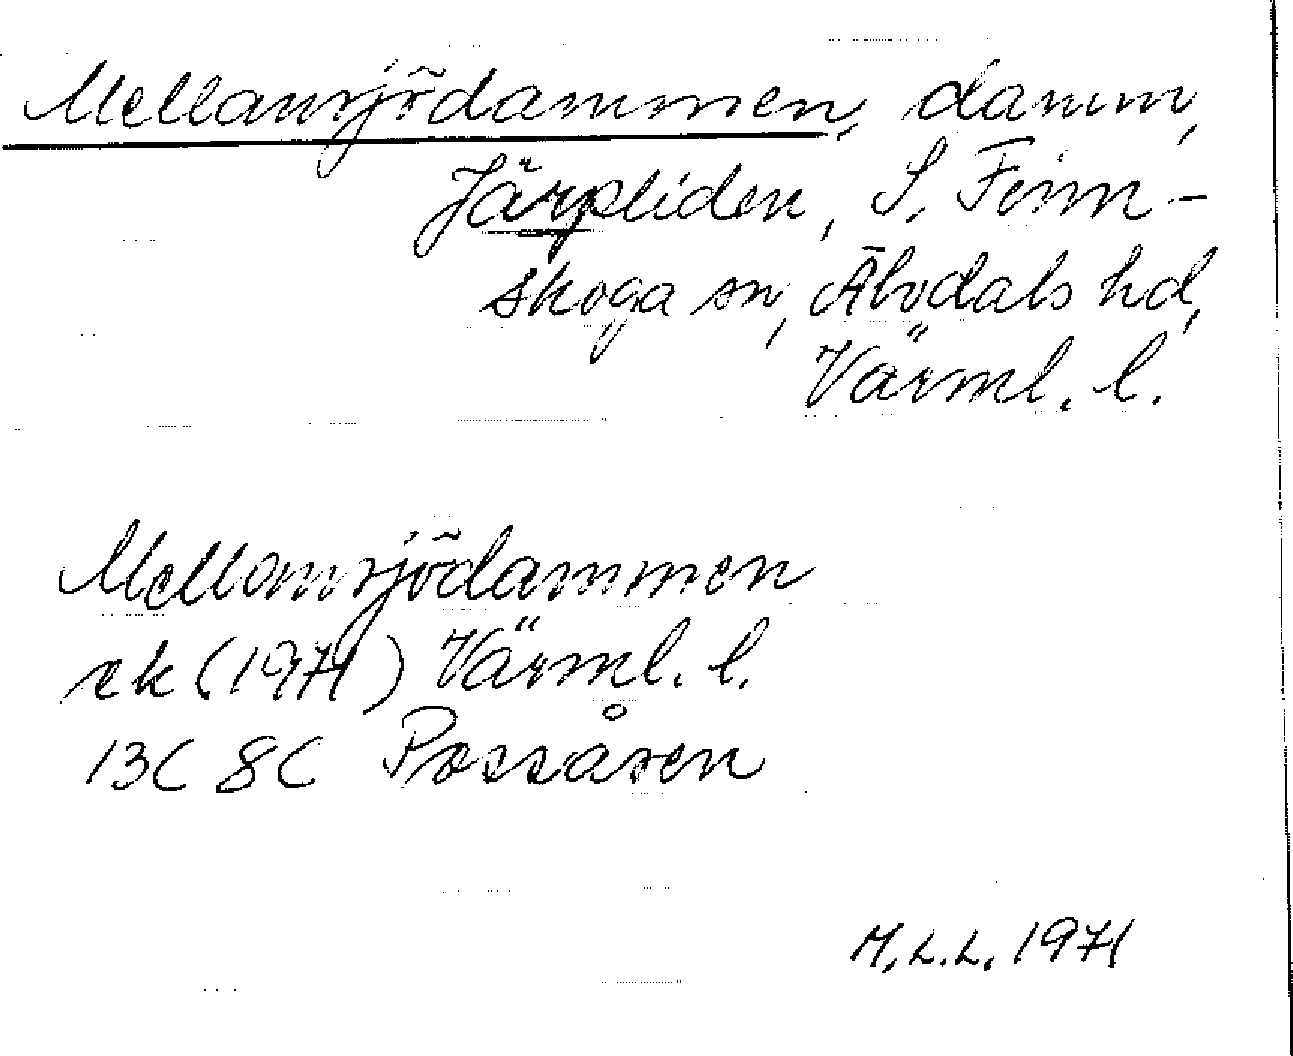 Mellansjödammen, damm,
Järpliden, S. Finn-
skoga sn, Älvdals hd,
Värml. l.
Mellansjödammen
ek (1971) Värml. l.
13C 8C Possåsen
M.L.L. 1971